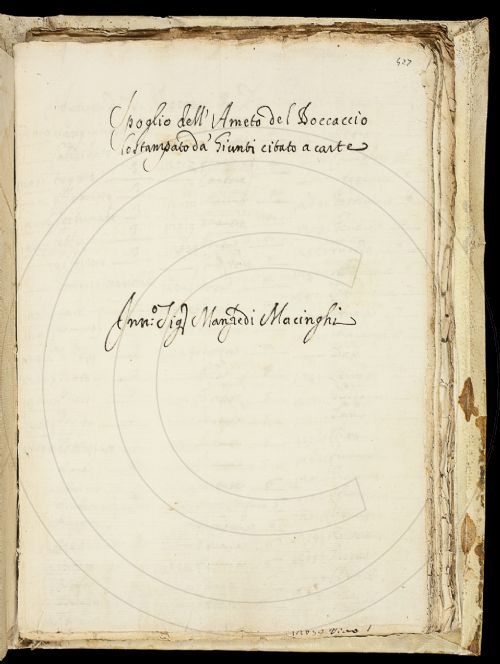 Spoglio dell' Ameto del Boccaccio
lo stampato da' Giunti citato a carte
Inn:º Sig.r Manfredi Macinghi